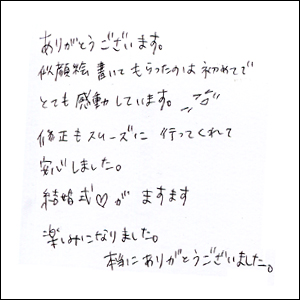 ありがとうございます。
似顔絵書いてもらったのは初めてで
とても感動しています。
修正もスムーズに行ってくれて
安心しました。
結婚式♡がますます
楽しみになりました。
本当にありがとうございました。